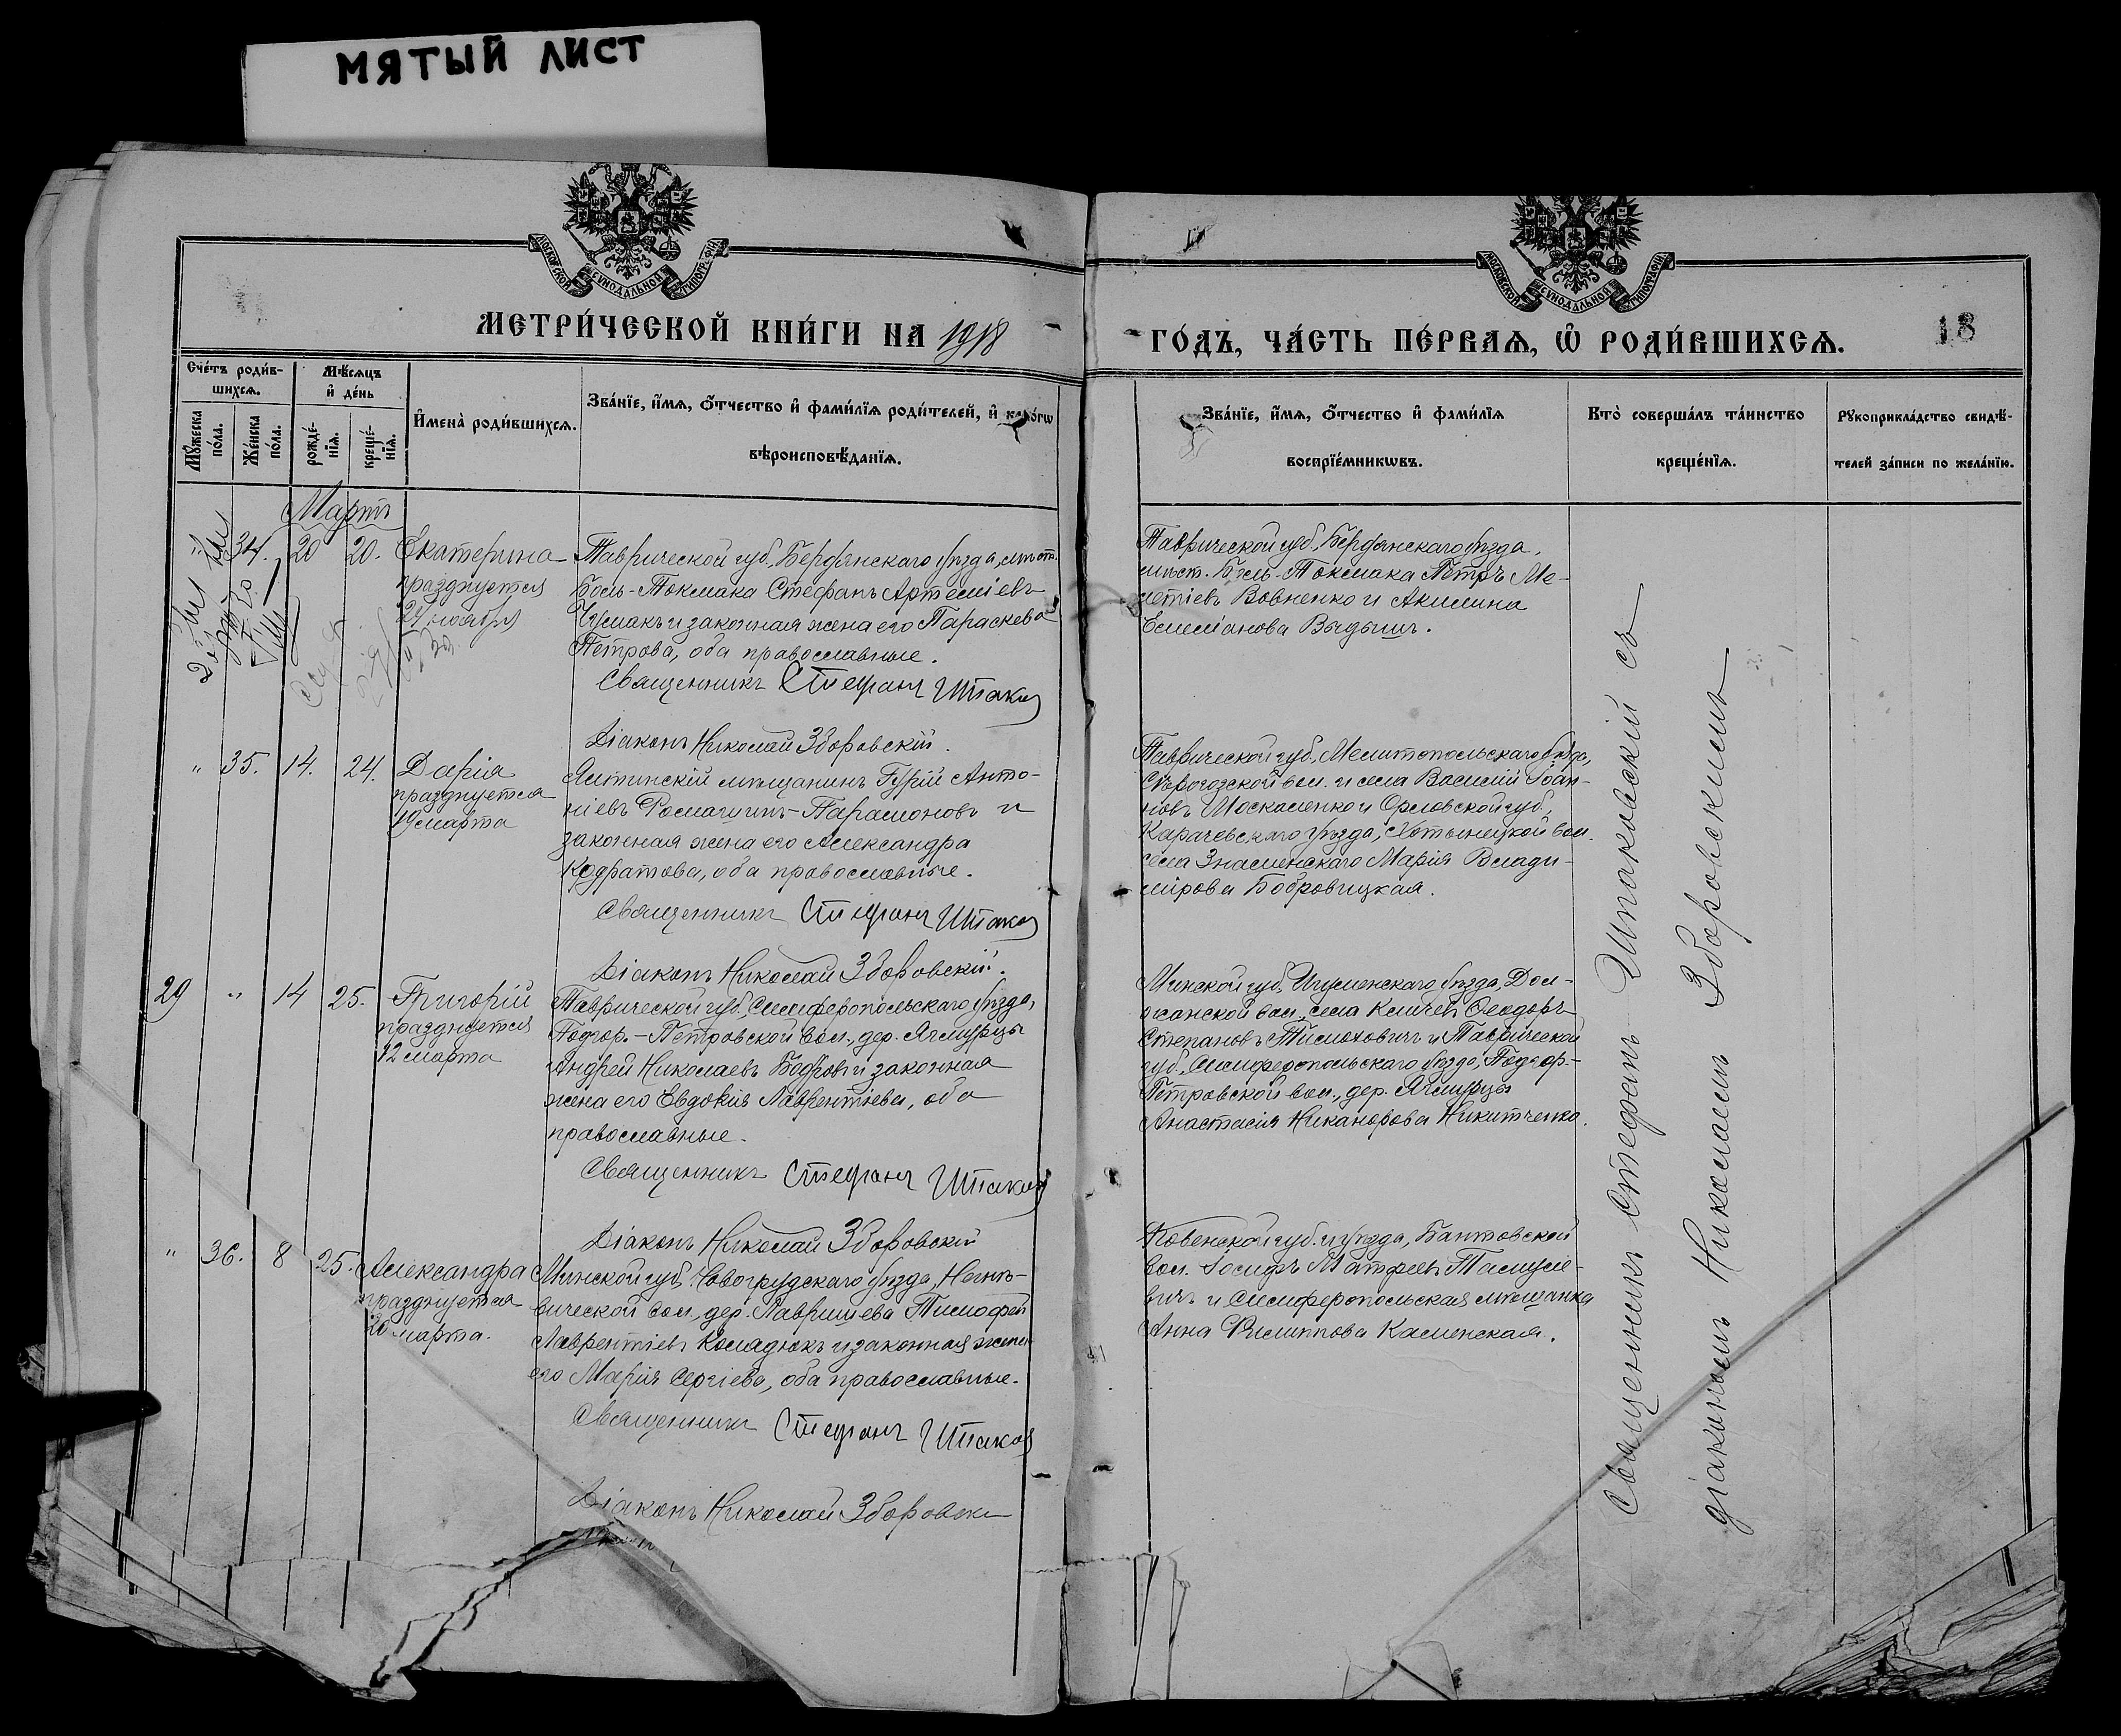 МЯТЫЙ ЛИСТ
МОСКОВСКОЙ СѴНОДАЛЬНОЙ ТИПОГРАФІИ
МОСКОВСКОЙ СѴНОДАЛЬНОЙ ТИПОГРАФІИ
МЕТРИ́ЧЕСКОЙ КНИ́ГИ НА 1918
ГО́ДЪ, ЧА́СТЬ ПЕ́РВАѦ, Ѡ҆ РОДИ́ВШИХСѦ.
18
Сче́тъ роди́в-
шихсѧ.
Мѣ́сѧцъ
и҆ де́нь
Мꙋ́жеска по́ла.
Же́нска по́ла.
рожде́-
нїѧ.
креще́-
нїѧ.
И҆мена̀ роди́вшихсѧ.
Зва́нїе, и҆́мѧ, ѻ҆́тчество и҆ фами́лїѧ роди́телей, и҆ како́гѡ
вѣроисповѣ́данїѧ.
Зва́нїе, и҆́мѧ, ѻ҆́тчество и҆ фами́лїѧ
воспрїе́мникѡвъ.
Кто̀ соверша́лъ та́инство
креще́нїѧ.
Рꙋкоприкла́дство свидѣ́-
телей за́писи по жела́нїю.
Мартъ
" 34. 20 20. Екатерина
празднуется
24 ноября
Таврической губ., Бердянскаго уѣзда, мѣст.
Боль-Токмака Стефанъ Артеміевъ
Чумакъ и законная жена его Параскева
Петрова, оба православные.
Священникъ Стефанъ Шпаков
Діаконъ Николай Зборовскій.
Таврической губ., Бердянскаго уѣзда,
мѣст. Боль-Токмака Петръ Ме-
летіевъ Вовненко и Акилина
Емеліанова
" 35. 14. 24. Дарія
празднуется
19 марта
Ялтинскій мѣщанинъ Гурій Анто-
ніевъ Ромашинъ-Парамоновъ и
законная жена его Александра
Кодратова, оба православные.
Священникъ Стефанъ Шпаков
Діаконъ Николай Зборовскій.
Таврической губ., Мелитопольскаго уѣзда,
Сѣрогозской вол. и села Василій Іоан-
новъ Москаленко и Орловской губ.,
Карачевскаго уѣзда, Хотынецкой вол.
села Знаменскаго Марія Влади-
мірова Бобровицкая.
29 " 14 25. Григорій
празднуется
12 марта
Таврической губ., Симферопольскаго уѣзда,
Подгор.-Петровской вол., дер.
Андрей Николаевъ Бобровъ и законная
жена его Евдокія Лаврентіева, оба
православные.
Священникъ Стефанъ Шпаков
Діаконъ Николай Зборовскій
Минской губ., Игуменскаго уѣзда, Дол-
жанской вол., села Кличевъ Ѳеодоръ
Степановъ Тимоховичъ и Таврической
губ., Симферопольскаго уѣзда, Подгор-
Петровской вол., дер.
Анастасія Никанорова Никитченко.
" 36. 8 25. Александра
празднуется
20 марта.
Минской губ., Новогрудскаго уѣзда, Негнѣ-
вической вол., дер. Лавришева Тимофей
Лаврентіевъ Коладюкъ и законная жена
его Марія Сергіева, оба православные.
Священникъ Стефанъ Шпаков
Діаконъ Николай Зборовски
Ковенской губ. и уѣзда,
вол. Іосифъ Матфеевъ
вичъ и Симферопольская мѣщанка
Анна Филиппова Каменская.
Священникъ Стефанъ Шпаковскій съ
діакономъ Николаемъ Зборовскимъ